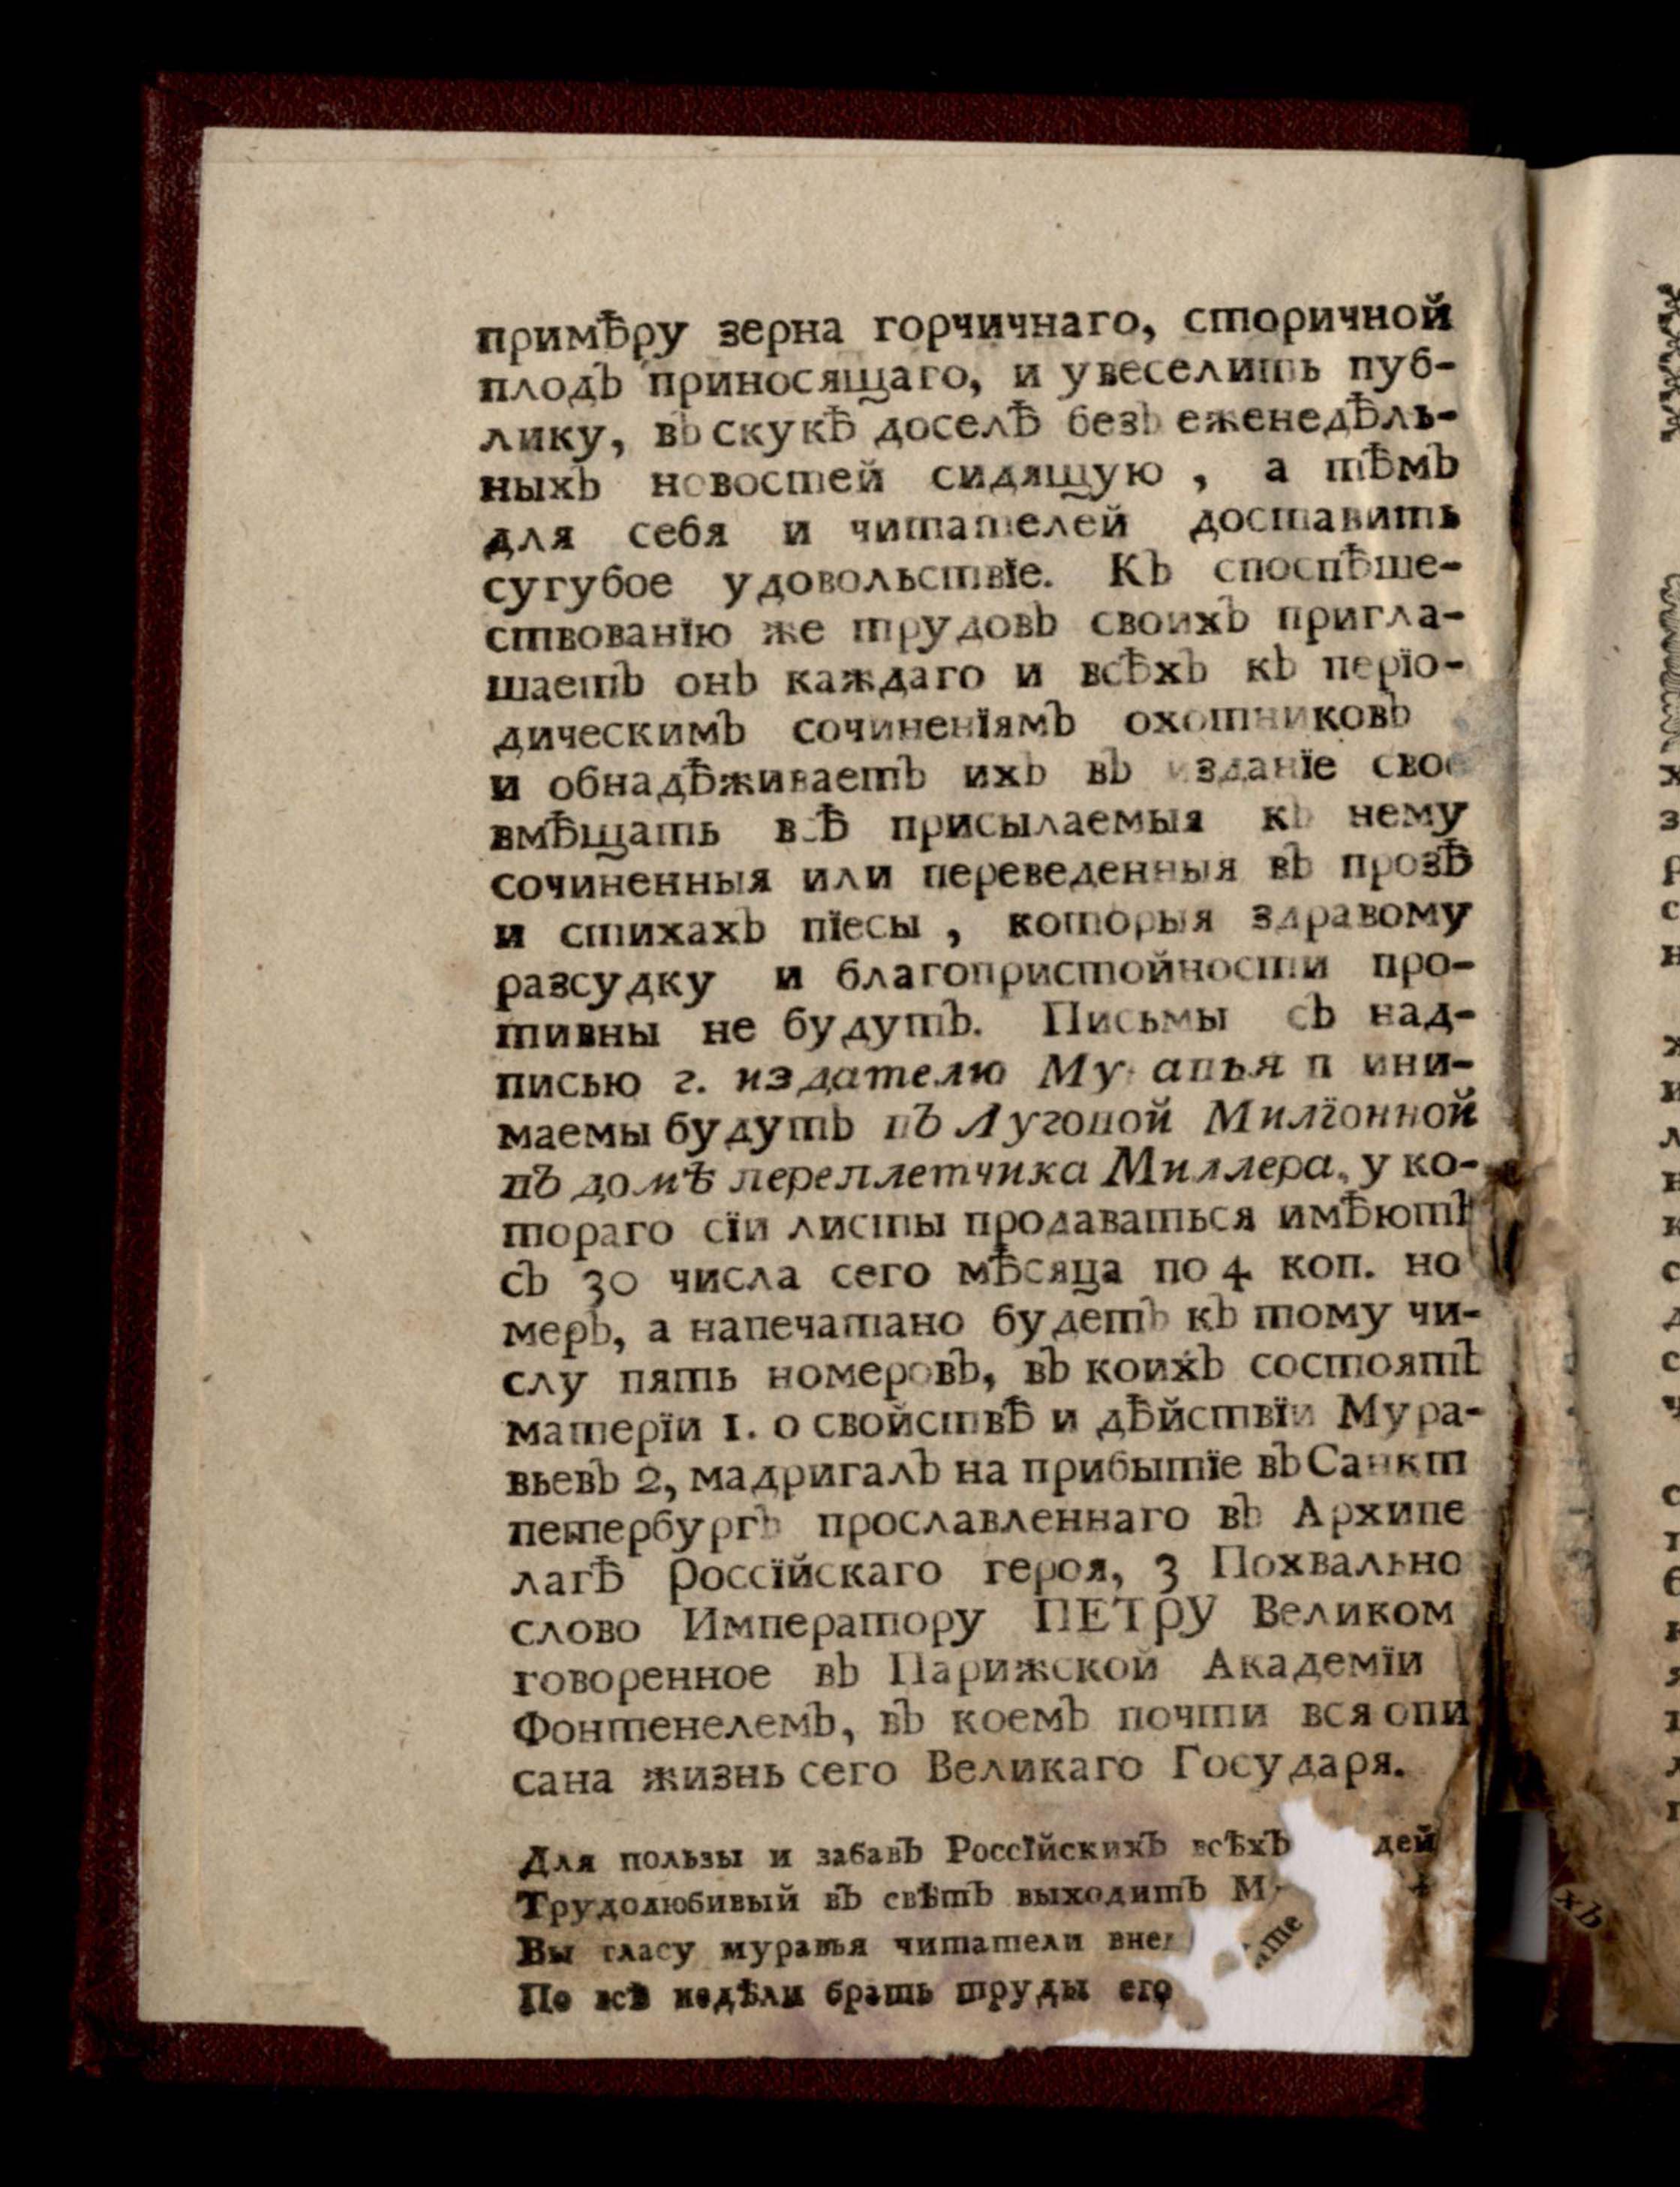 примѣру зерна горчичнаго, сторичной
плодъ приносящаго, и увеселить пуб-
лику, въ скукѣ доселѣ безъ еженедѣль-
ныхъ новостей сидящую , а тѣмъ
для себя и читателей доставить
сугубое удовольствїе. Къ споспѣше-
ствованїю же трудовъ своихъ пригла-
шаетъ онъ каждаго и всѣхъ къ перїо-
дическимъ сочиненїямъ охотниковъ
и обнадѣживаетъ ихъ въ изданїе свое
вмѣщать всѣ присылаемыя къ нему
сочиненныя или переведенныя въ прозѣ
и стихахъ пїесы , которыя здравому
разсудку и благопристойности про-
тивны не будутъ. Письмы съ над-
писью г. издателю Му апья п ини-
маемы будутъ въ Луговой Милїонной
въ домѣ переплетчика Миллера, у ко-
тораго сїи листы продаваться имѣютъ
съ 30 числа сего мѣсяца по 4 коп. но
меръ, а напечатано будетъ къ тому чи-
слу пять номеровъ, въ коихъ состоятъ
матерїи 1. о свойствѣ и дѣйствїи Мура-
вьевъ 2, мадригалъ на прибытїе въ Санкт
петербургъ прославленнаго въ Архипе
лагѣ Россїйскаго героя, 3 Похвально
слово Императору ПЕТРУ Великом
говоренное въ Парижской Академїи
Фонтенелемъ, въ коемъ почти вся опи
сана жизнь сего Великаго Государя.
Для пользы и забавъ Россїйскихъ всѣхъ дей
Трудолюбивый въ свѣтъ выходитъ М
Вы гласу муравья читатели
По всѣ недѣли брать труды его